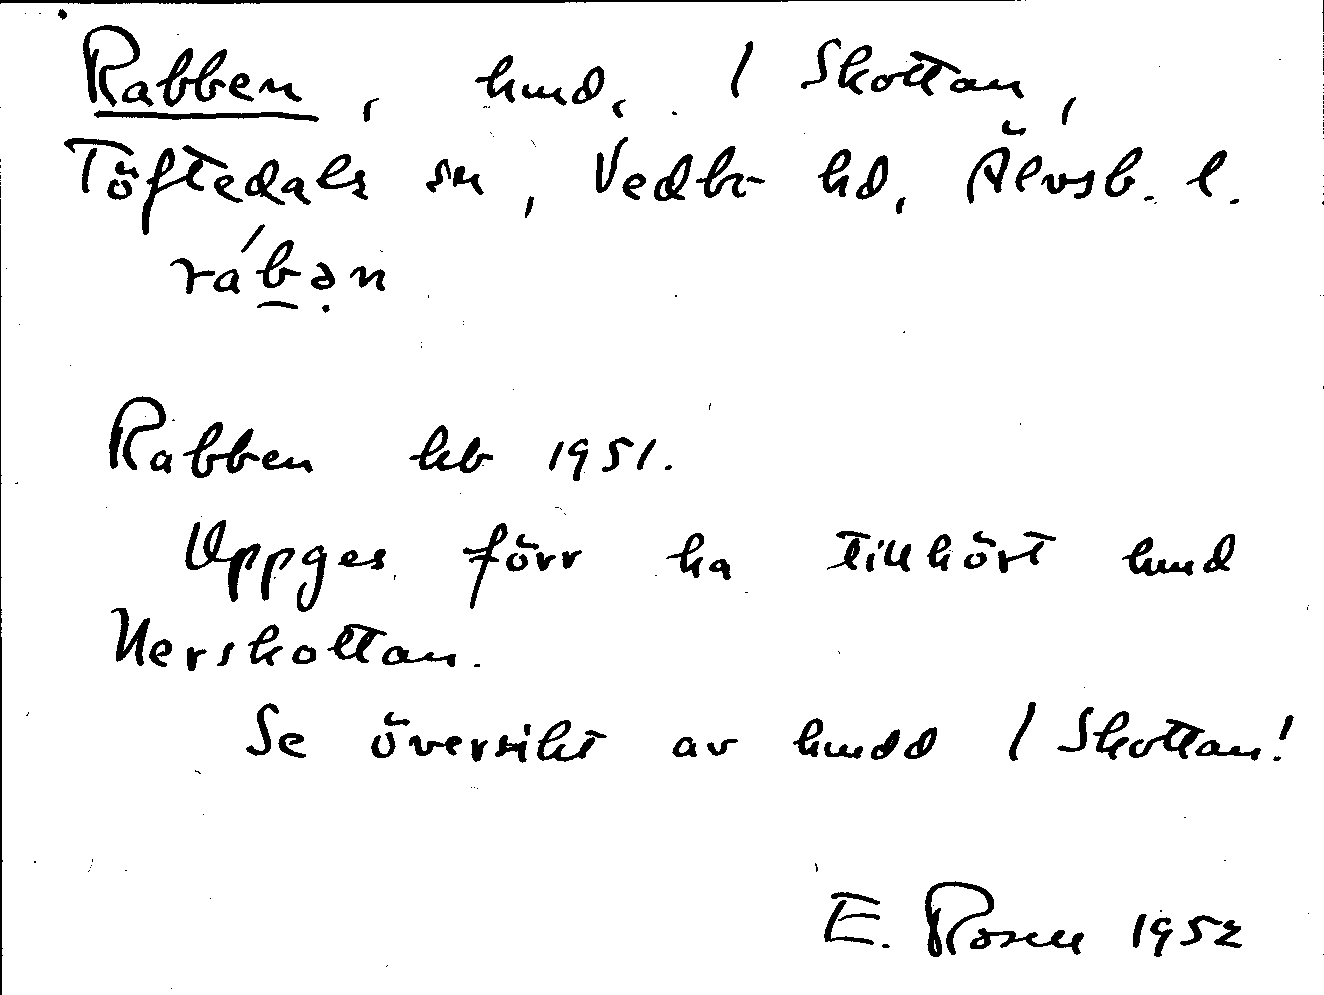 Rabben, hmd, 1 Skottan,
Töftedals sn, Vedbo hd, Älvsb. l.
ráb̲ə̣n
Rabben kb 1951.
Uppges förr ha tillhört hmd
Nerskottan.
Se översikt av hmdd 1 Skottan!
E. Rosen 1952